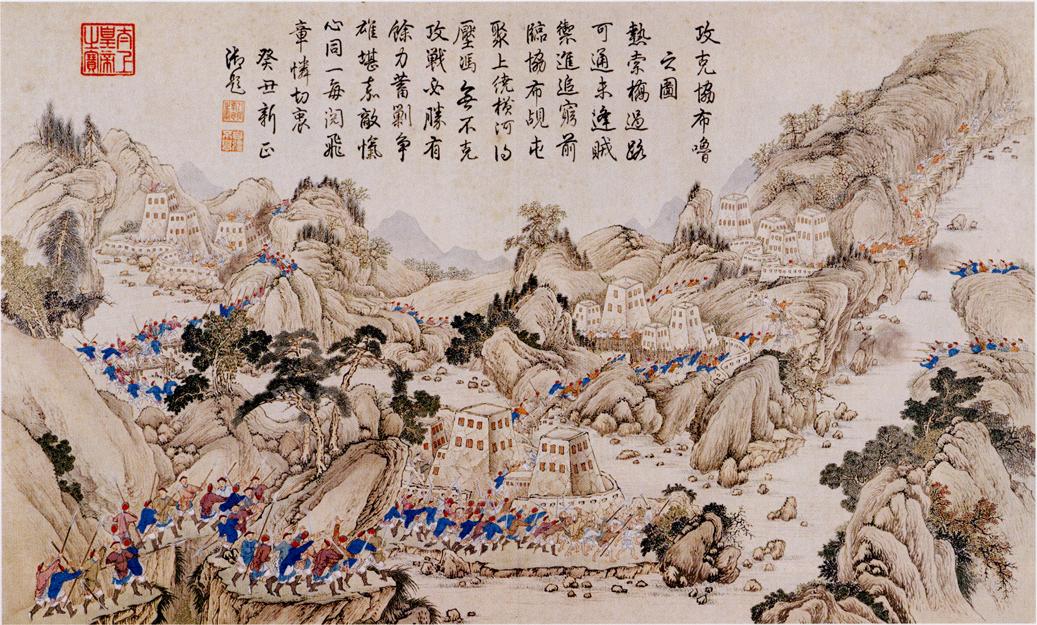 攻克協布嚕
之圖
熱索橋過路
可通未逢賊
禦進追窮前
臨協布覘屯
聚上繞橫河得
壓馮無不克
攻戰必勝有
餘力奮剿爭
雄堪嘉敵愾
心同一每閱飛
章憐切衷
癸丑新正
御題
太上皇帝之寶